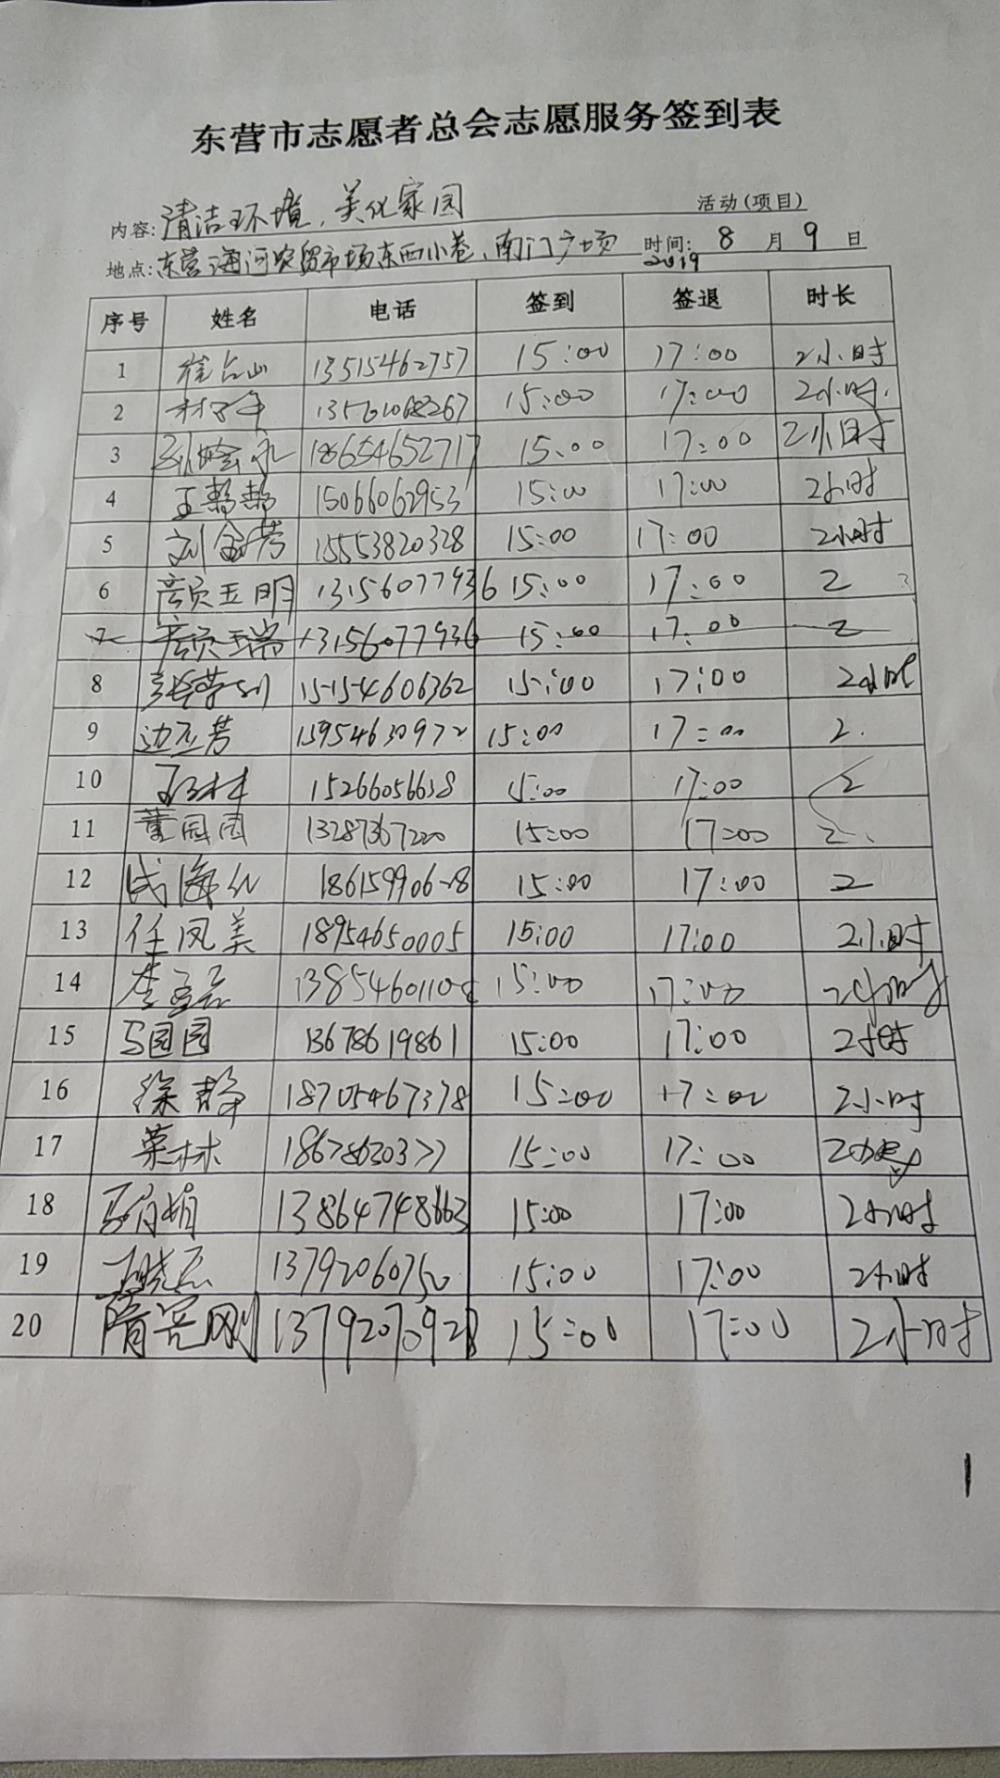 东营市志愿者总会志愿服务签到表
内容:清洁环境,美化家园 活动(项目)
地点:东营海河农贸市场东西小巷、南门广场 时间: 8 月 9 日
2019
序号 姓名 电话 签到 签退 时长
1 13515462757 15:00 17:00 2小时
2 15:00 17:00 2小时.
3 18654652717 15:00 17:00 2小时
4 王帮帮 15066062953 15:00 17:00 2小时
5 刘金芳 15553820328 15:00 17:00 2小时
6 玉明 13156077936 15:00 17:00 2
7 瑞 13156077936 15:00 17:00 2
8 15154606362 15:00 17:00 2小时
9 边玉芳 15954630972 15:00 17:00 2.
10 15266056638 15:00 17:00 2
11 董园园 13287367200 15:00 17:00 2
12 成海 15:00 17:00 2
13 任凤美 18954650005 15:00 17:00 2小时
14 李 15:00 17:00 2小时
15 马园园 13678619861 15:00 17:00 2小时
16 徐静 18705467378 15:00 17:00 2小时
17 栗林 15:00 17:00 2小时
18 娟 13864748663 15:00 17:00 2小时
19 13792060750 15:00 17:00 2小时
20 隋 刚 15:00 17:00 2小时
1